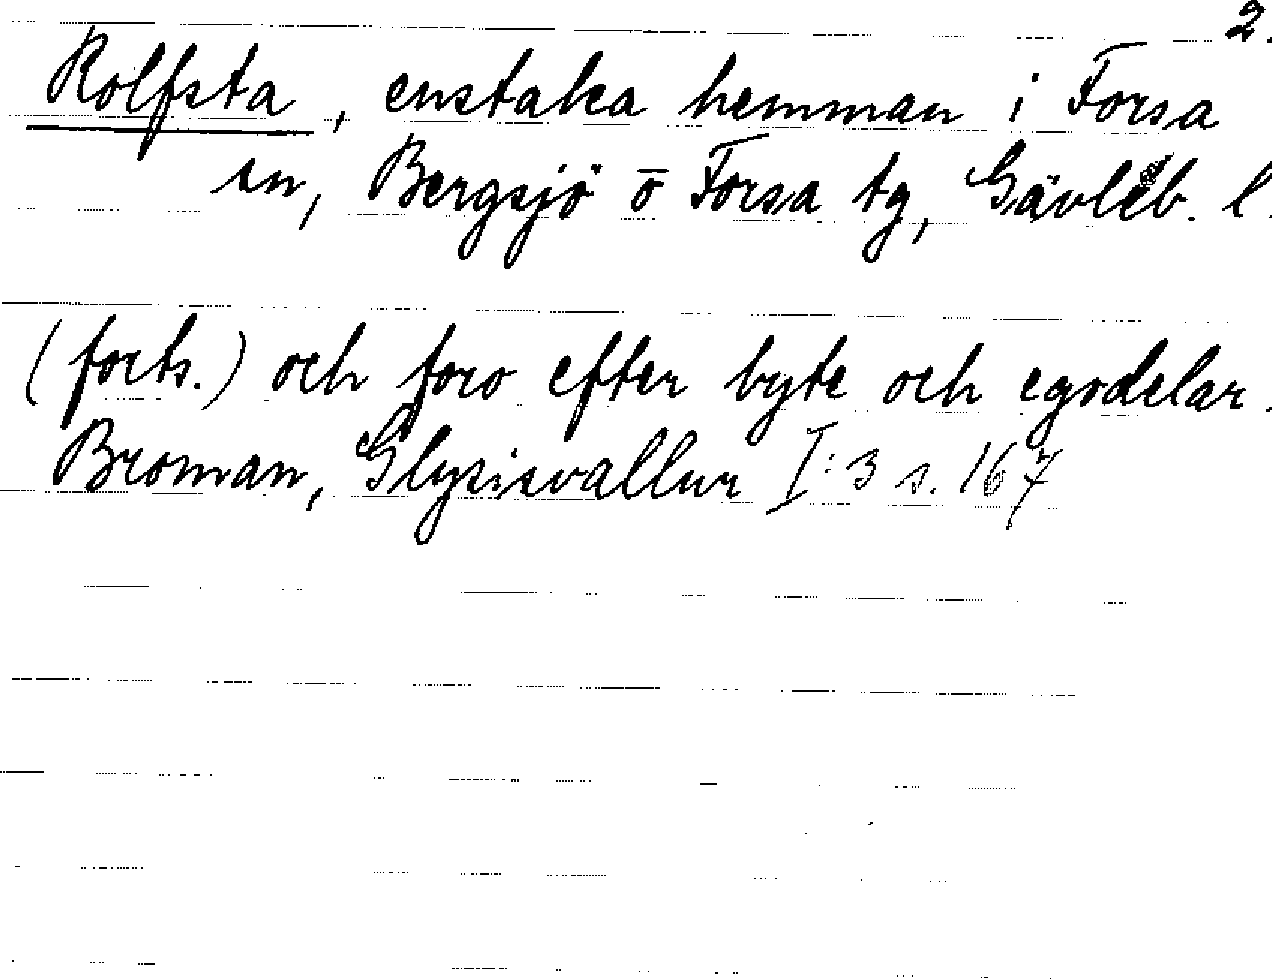 2.
Rolfsta, enstaka hemman i Forsa
sn, Bergsjö o Forsa tg, Gävleb. l.
(forts.) och foro efter byte och egodelar.
Broman, Glysisvallur I:3 s. 167